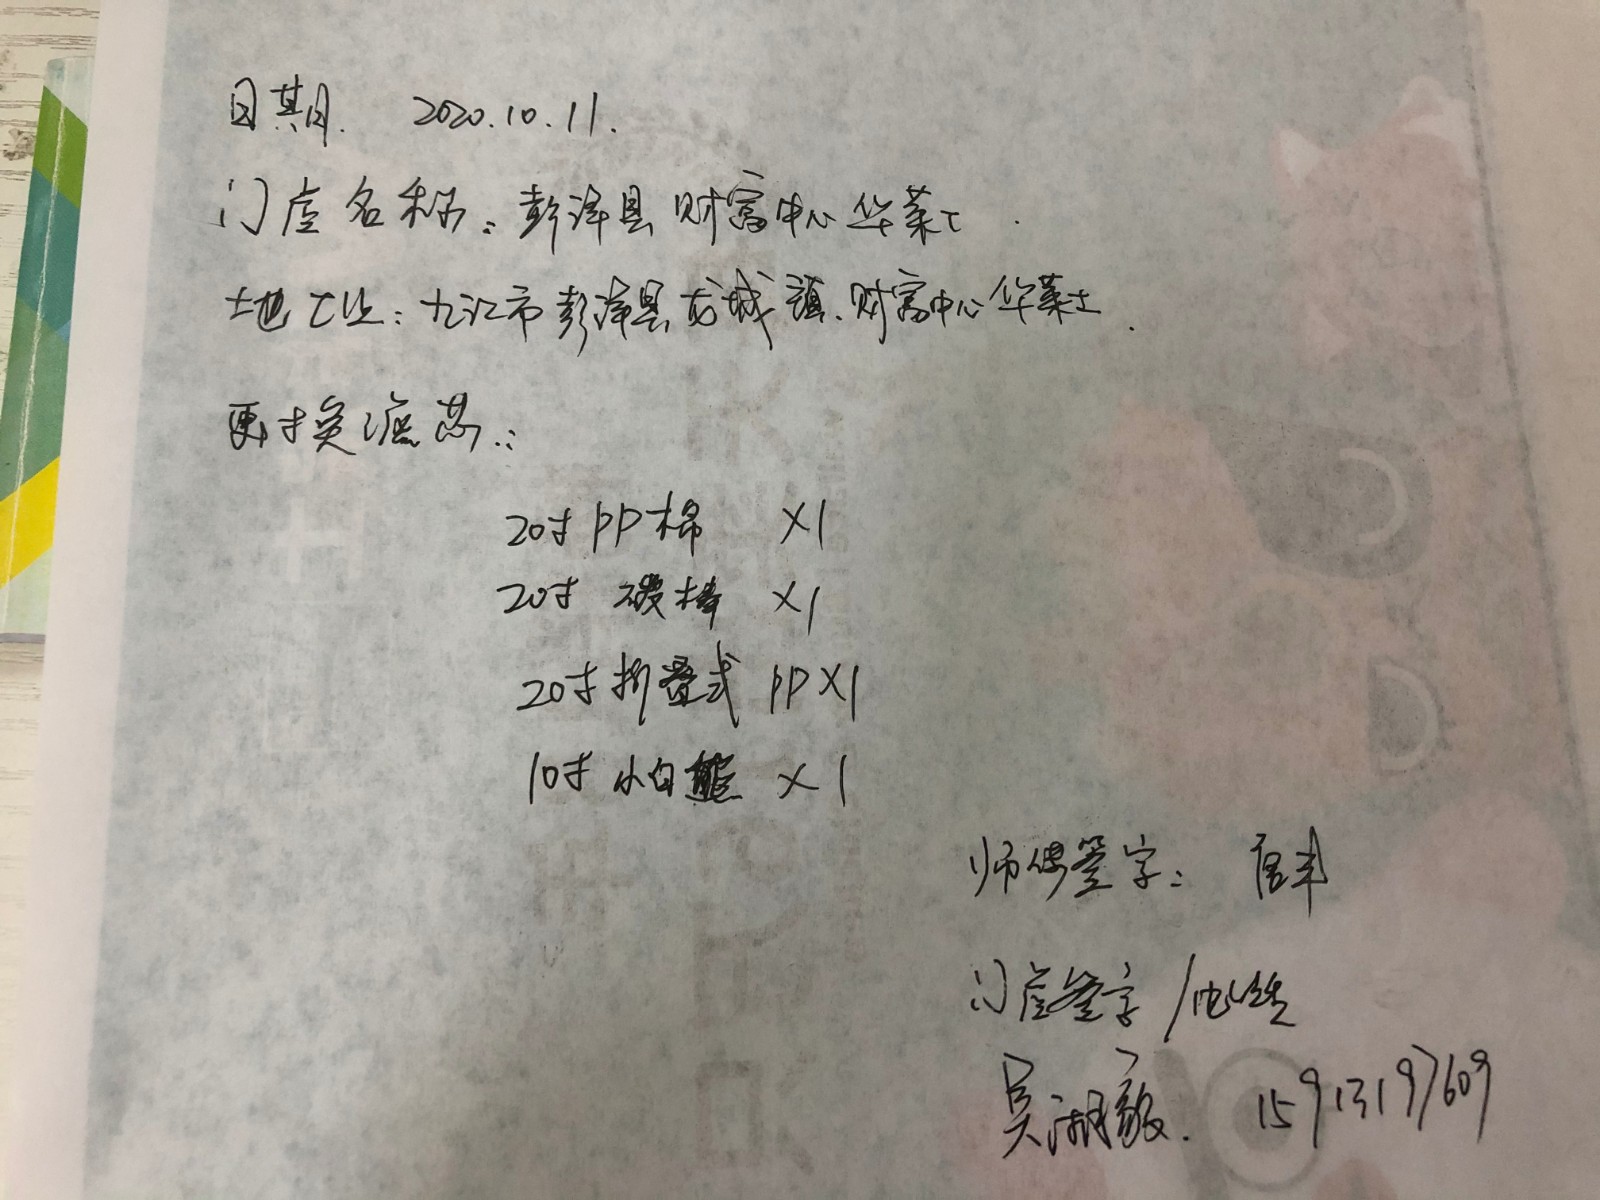 日期. 2020.10.11.
门店名称: 彭泽县财富中心华莱士.
地址: 九江市彭泽县龙城镇.财富中心华莱士.
更换滤芯:
20寸PP棉 X1
20寸 碳棒 X1
20寸折叠式 PPX1
10寸 小白熊 X1
师傅签字:
门店签字/电话
吴湖毅. 15913197609